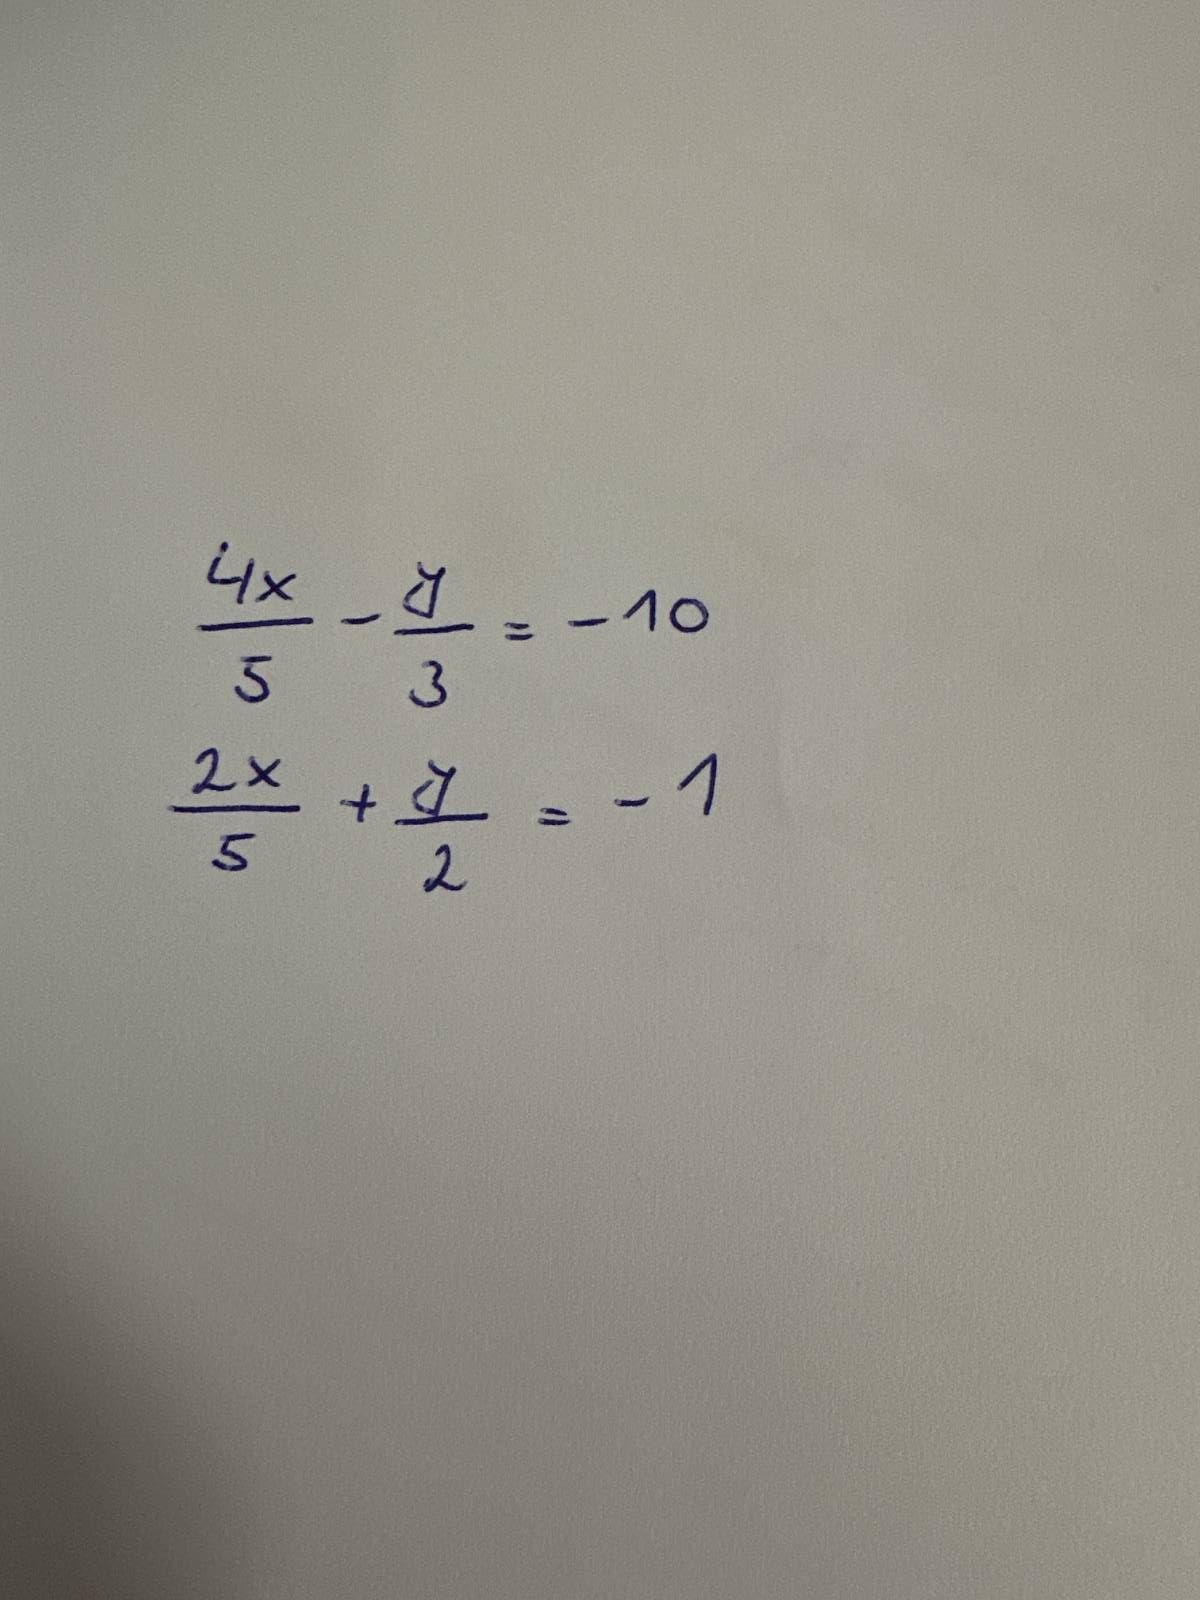 4x/5 - y/3 = -10
2x/5 + y/2 = -1